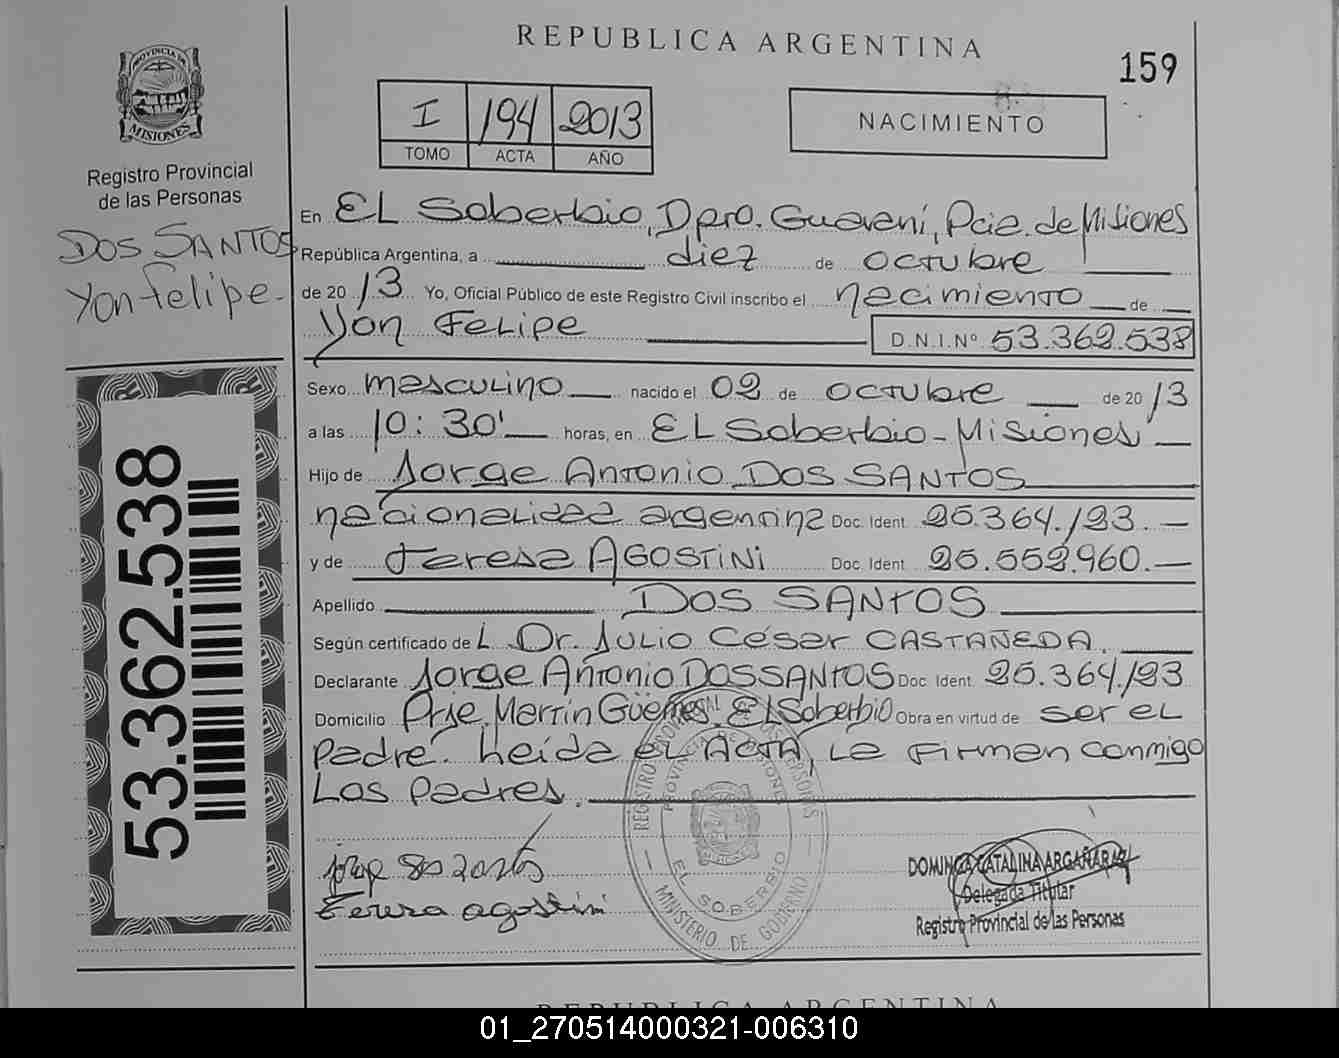 REPUBLICA ARGENTINA
159
PROVINCIA DE
MISIONES
Registro Provincial
de las Personas
DOS SANTOS
Yon Felipe.
I 194 2013
TOMO ACTA AÑO
NACIMIENTO
En EL Soberbio, Dpto. Guaraní, Pcia. de Misiones
República Argentina, a diez de octubre
de 2013 Yo, Oficial Público de este Registro Civil inscribo el nacimiento de
Yon Felipe D.N.I.Nº 53.362.538
Sexo masculino nacido el 02 de octubre de 2013
a las 10:30' horas, en EL Soberbio - Misiones
Hijo de Jorge Antonio DOS SANTOS
nacionalidad argentina Doc. Ident. 25.364.123.
y de Teresa AGOSTINI Doc. Ident. 25.552.960.
Apellido DOS SANTOS
Según certificado de L Dr. JULIO César CASTAÑEDA.
Declarante Jorge Antonio DOS SANTOS Doc. Ident. 25.364.123
Domicilio Prje. Martín Güemes, EL Soberbio Obra en virtud de ser el
padre. Leída el ACTA, La firman conmigo
Los padres.
53.362.538
Jorge dos santos
Teresa agostini
REGISTRO PROVINCIAL DE LAS PERSONAS
PROVINCIA DE MISIONES
EL SOBERBIO
MINISTERIO DE GOBIERNO
DOMINGA CATALINA ARGAÑARAZ
Delegada Titular
Registro Provincial de las Personas
REPUBLICA ARGENTINA
01_270514000321-006310